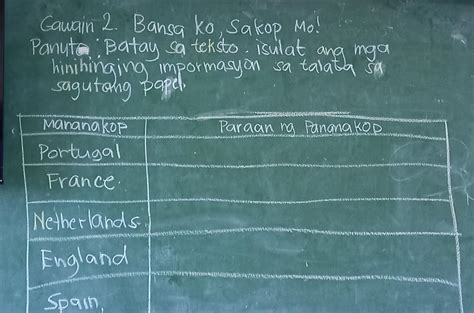 Gawain 2. Bansa ko, Sakop Mo!
Panuto: Batay sa teksto. isulat ang mga
hinihinging impormasyon sa talata sa
sagutang papel.
Mananakop Paraan ng Pananakop
Portugal
France.
Netherlands.
England
Spain.